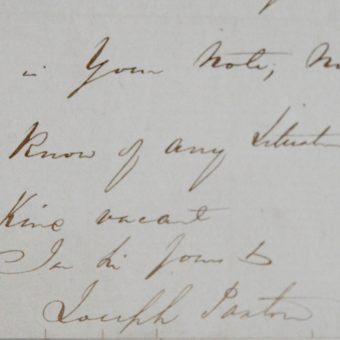 in Your Note, No
Know of any Situation
Kind vacant
I am Sir Yours &
Joseph Paxton